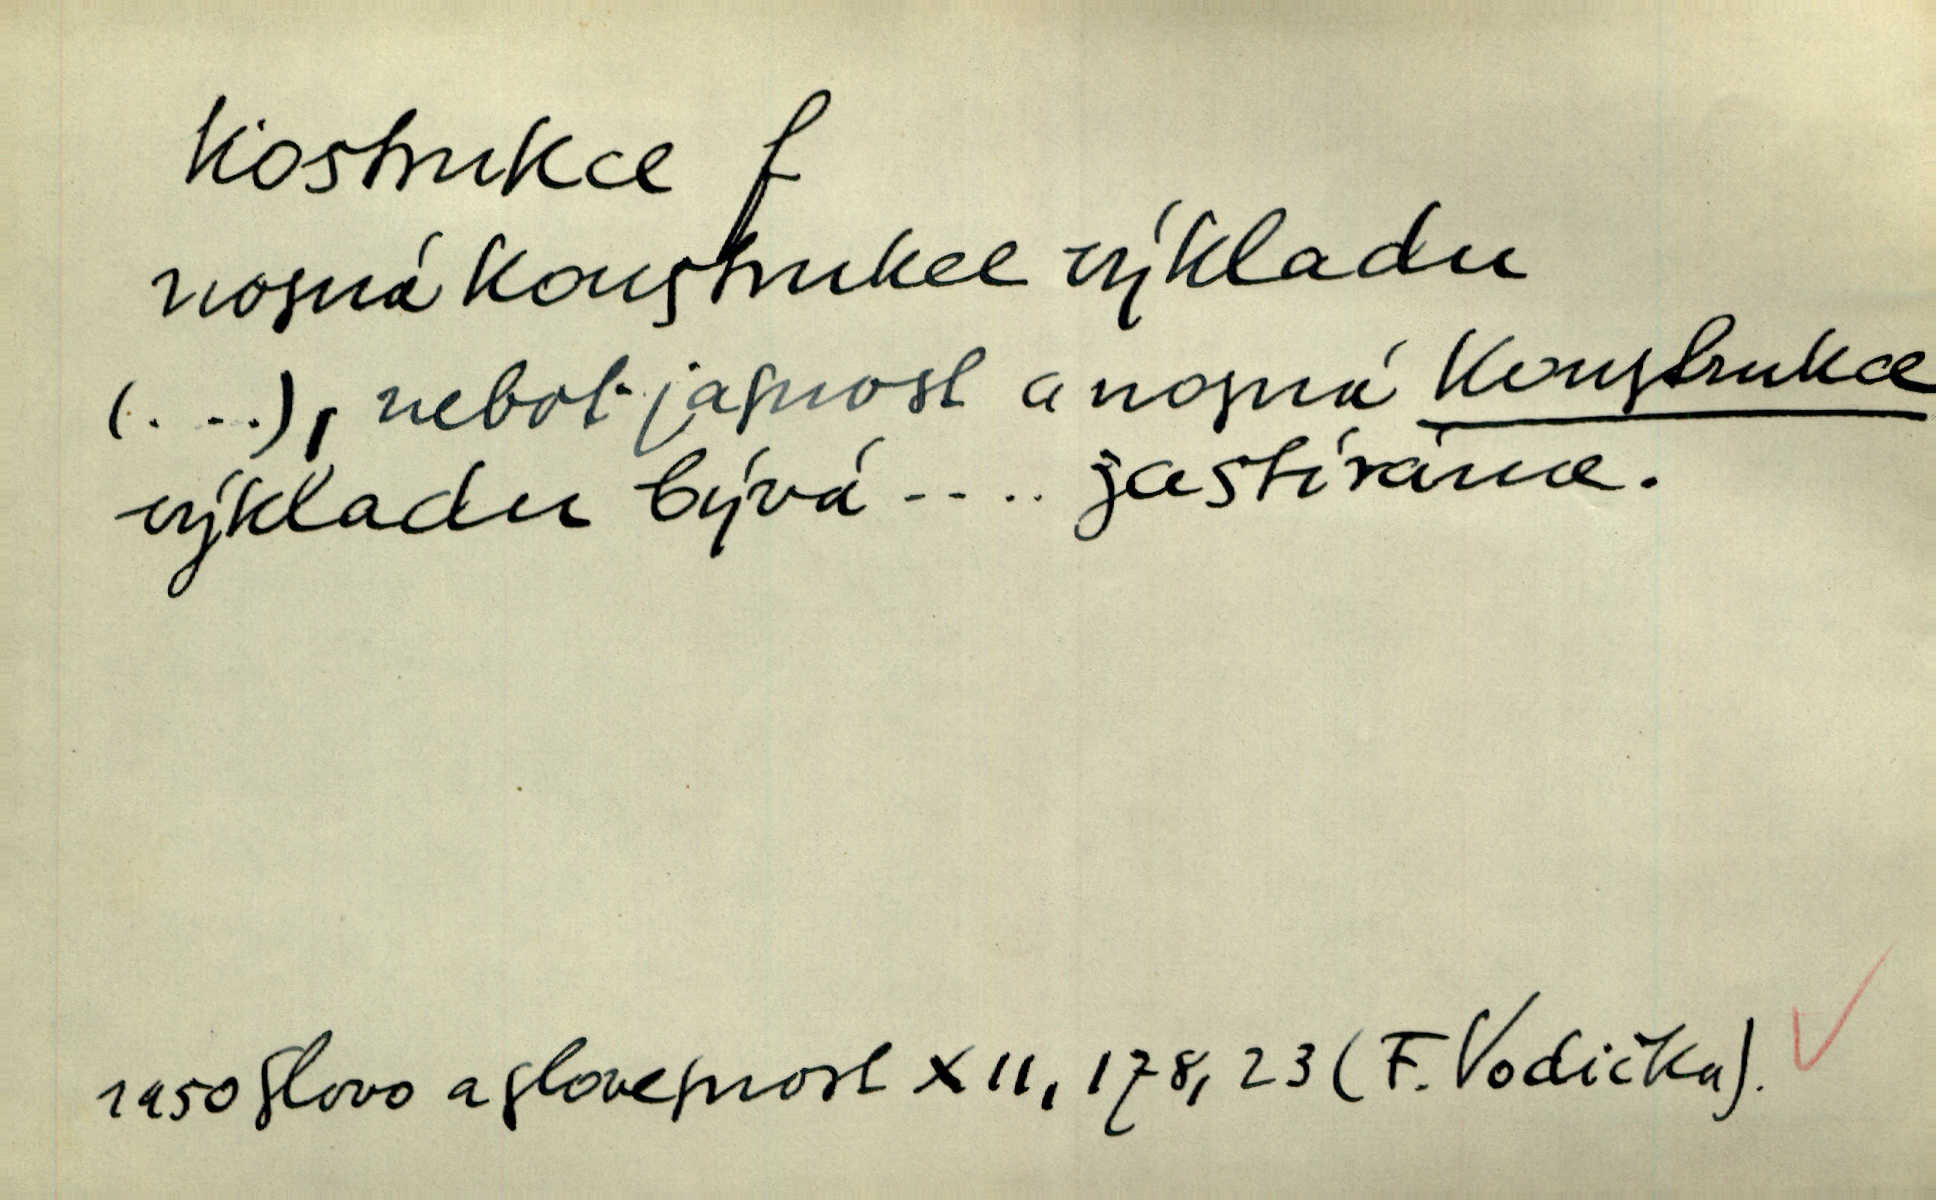 Kostrukce f
nosná konstrukce výkladu
(....), neboť jasnost a nosná konstrukce
výkladu bývá ..... zastírána.
1950 Slovo a slovesnost XII, 178, 23 (F. Vodička).